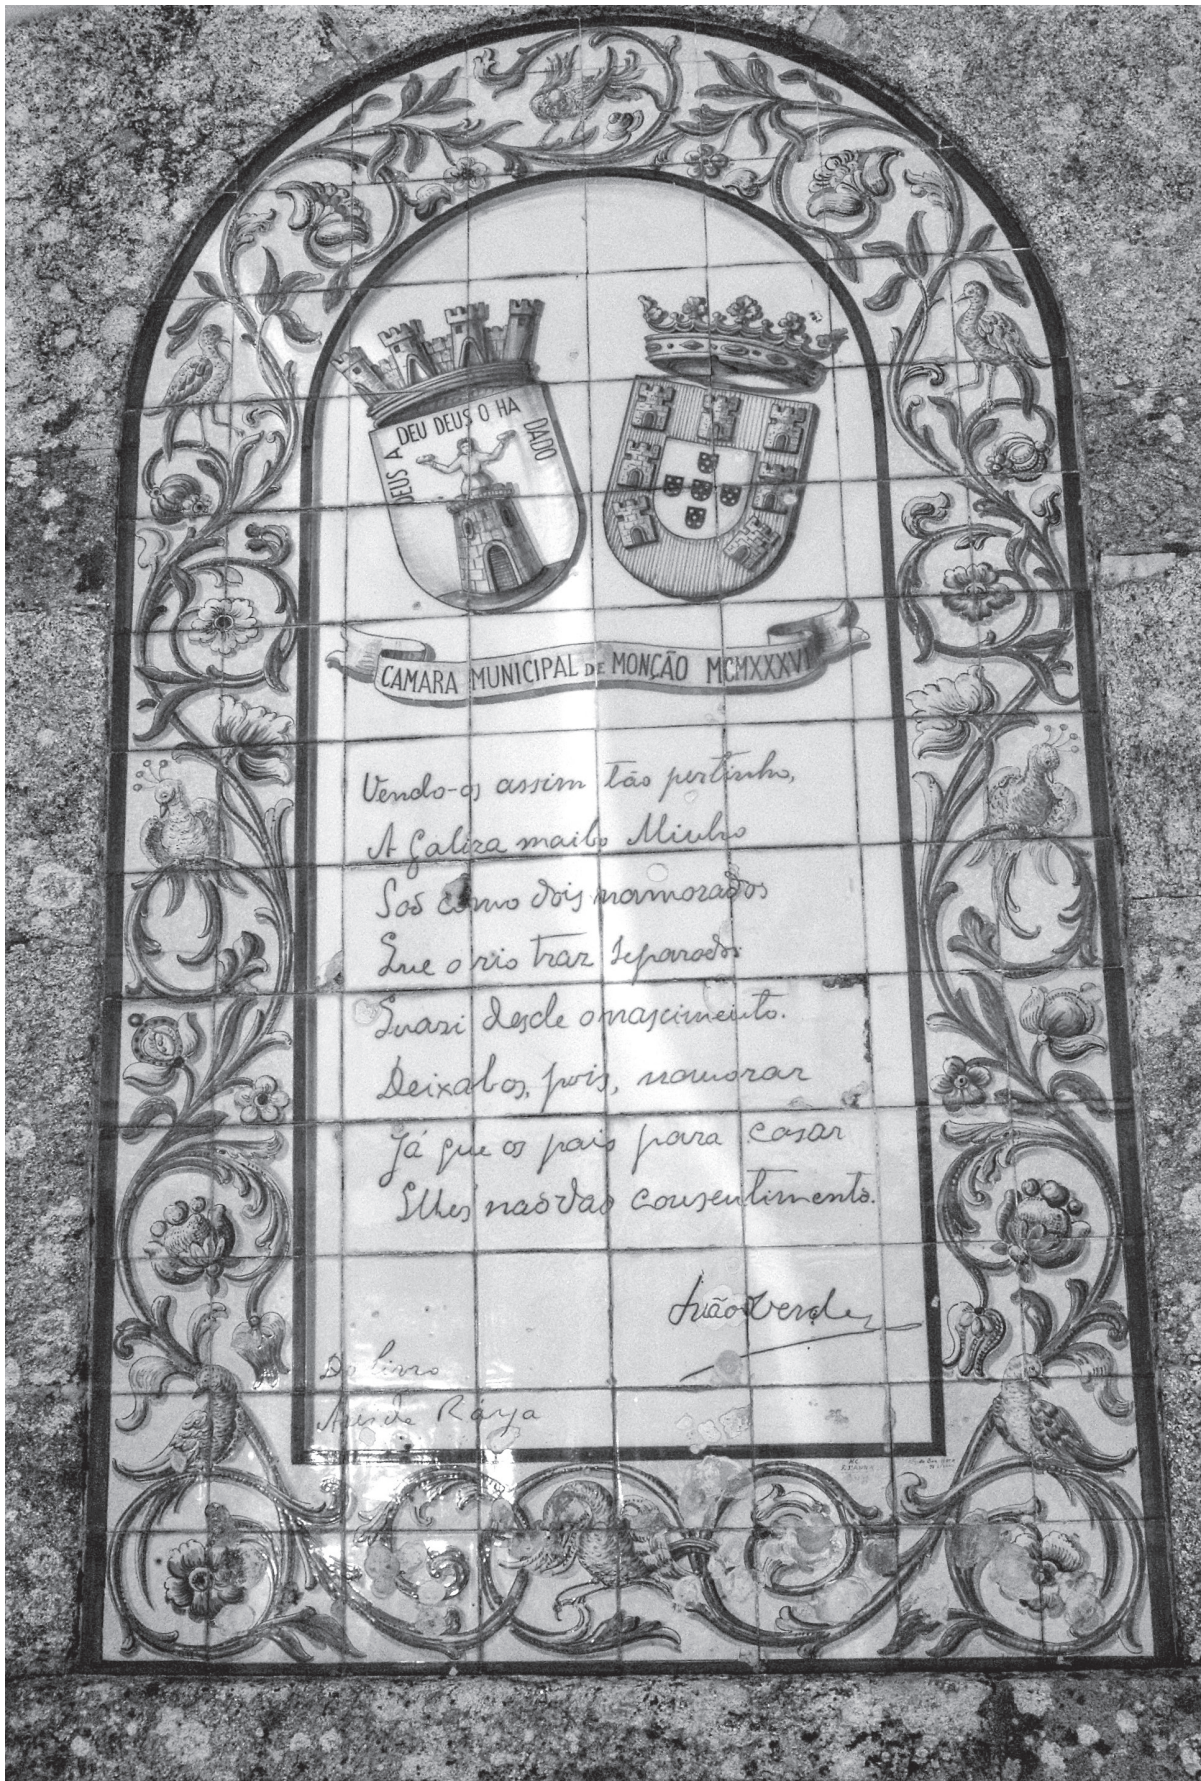 DEUS A DEU DEUS O HA DADO
CAMARA MUNICIPAL DE MONÇÃO MCMXXXVI
Vendo-os assim tão pertinho,
A Galiza mailo Minho
São como dois namorados
Que o rio traz separados
Quasi desde o nascimento.
Deixalos, pois, namorar
Já que os pais para casar
Lhes não dão consentimento.
João Verde
Do livro
Ares da Raya